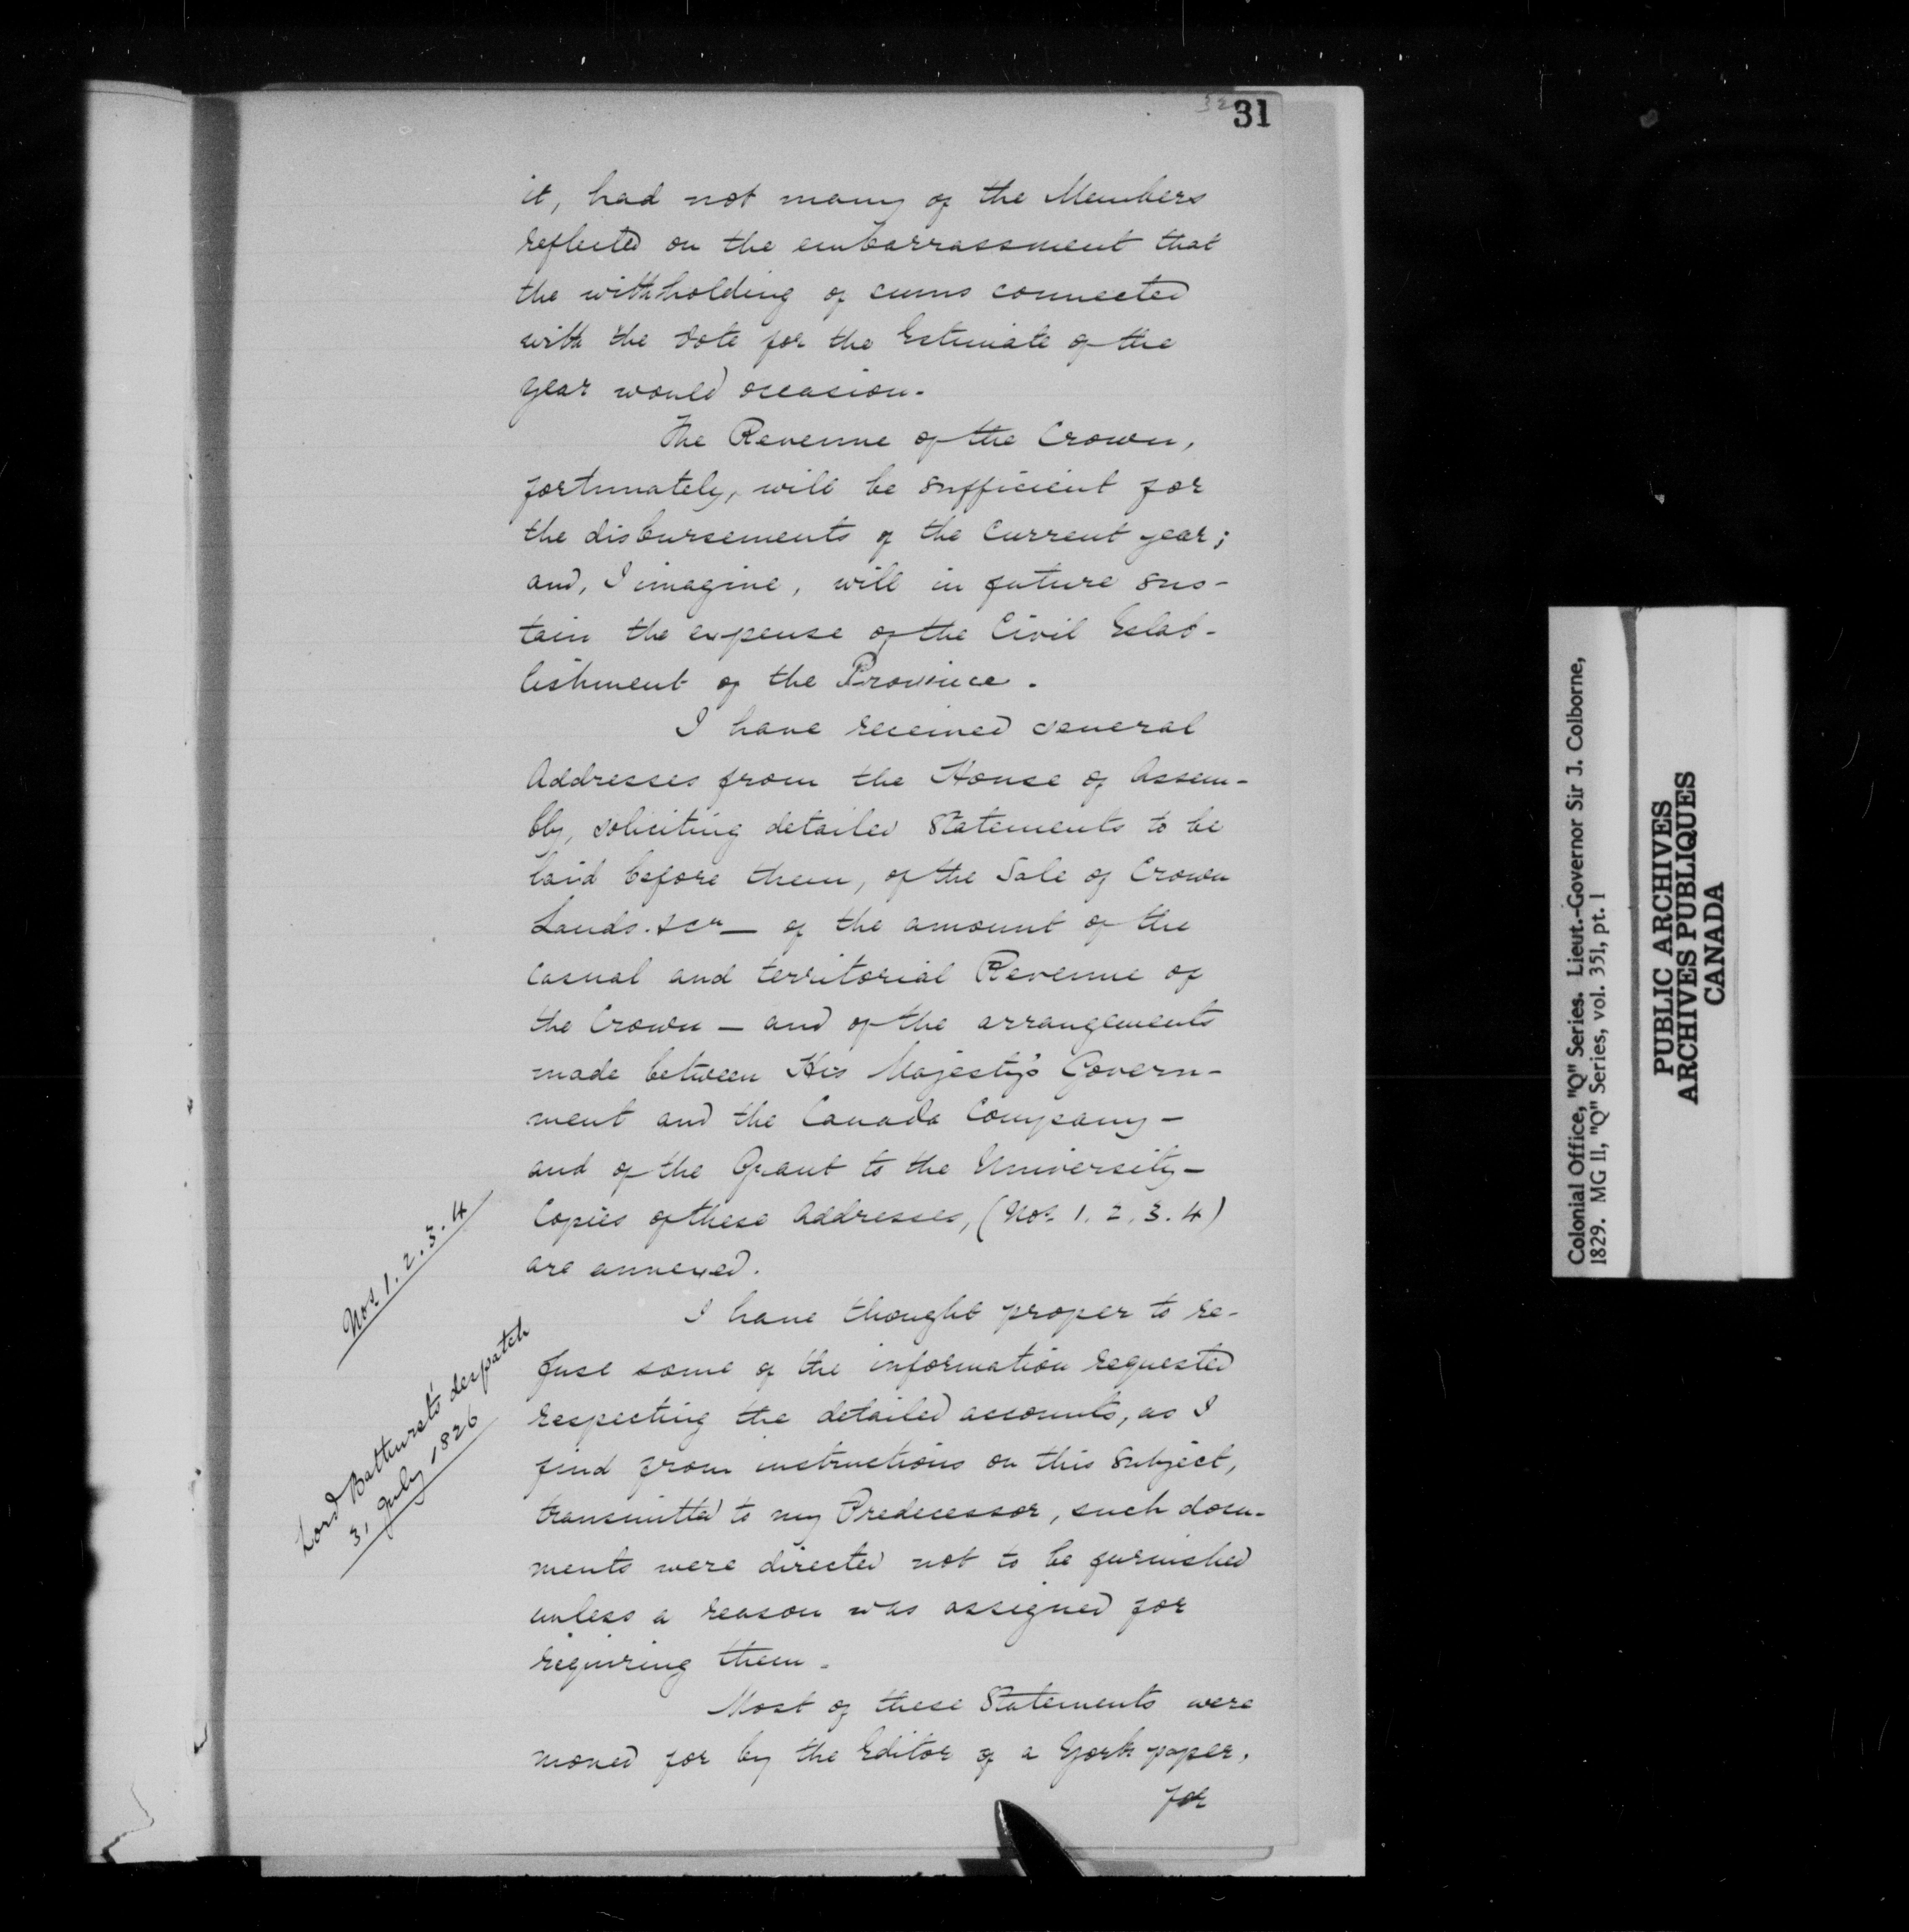 32
31
it, had not many of the Members
reflected on the embarrassment that
the withholding of sums connected
with the vote for the Estimate of the
year would occasion.
The Revenue of the Crown,
fortunately, will be sufficient for
the disbursements of the current year;
and, I imagine, will in future sus-
tain the expense of the Civil Estab-
lishment of the Province.
I have received several
Addresses from the House of Assem-
bly, soliciting detailed Statements to be
laid before them, of the Sale of Crown
Lands. &ca — of the amount of the
casual and territorial Revenue of
the Crown — and of the arrangements
made between His Majesty's Govern-
ment and the Canada Company —
and of the Grant to the University —
Copies of these Addresses, (Nos. 1. 2. 3. 4)
are annexed.
Nos. 1. 2. 3. 4
I have thought proper to re-
fuse some of the information requested
respecting the detailed accounts, as I
find from instructions on this subject,
transmitted to my Predecessor, such docu-
ments were directed not to be furnished
unless a reason was assigned for
requiring them.
Lord Bathurst's despatch
31 July 1826
Most of these Statements were
moved for by the Editor of a York paper,
for
Colonial Office, "Q" Series. Lieut.-Governor Sir J. Colborne,
1829. MG 11, "Q" Series, vol. 351, pt. 1
PUBLIC ARCHIVES
ARCHIVES PUBLIQUES
CANADA